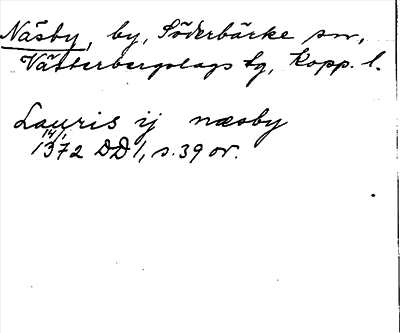 Näsby, by, Söderbärke sn,
Västerbergslags tg, Kopp. l.
Lauris ij næsby
14/1
1372 DD1, s. 39 or.